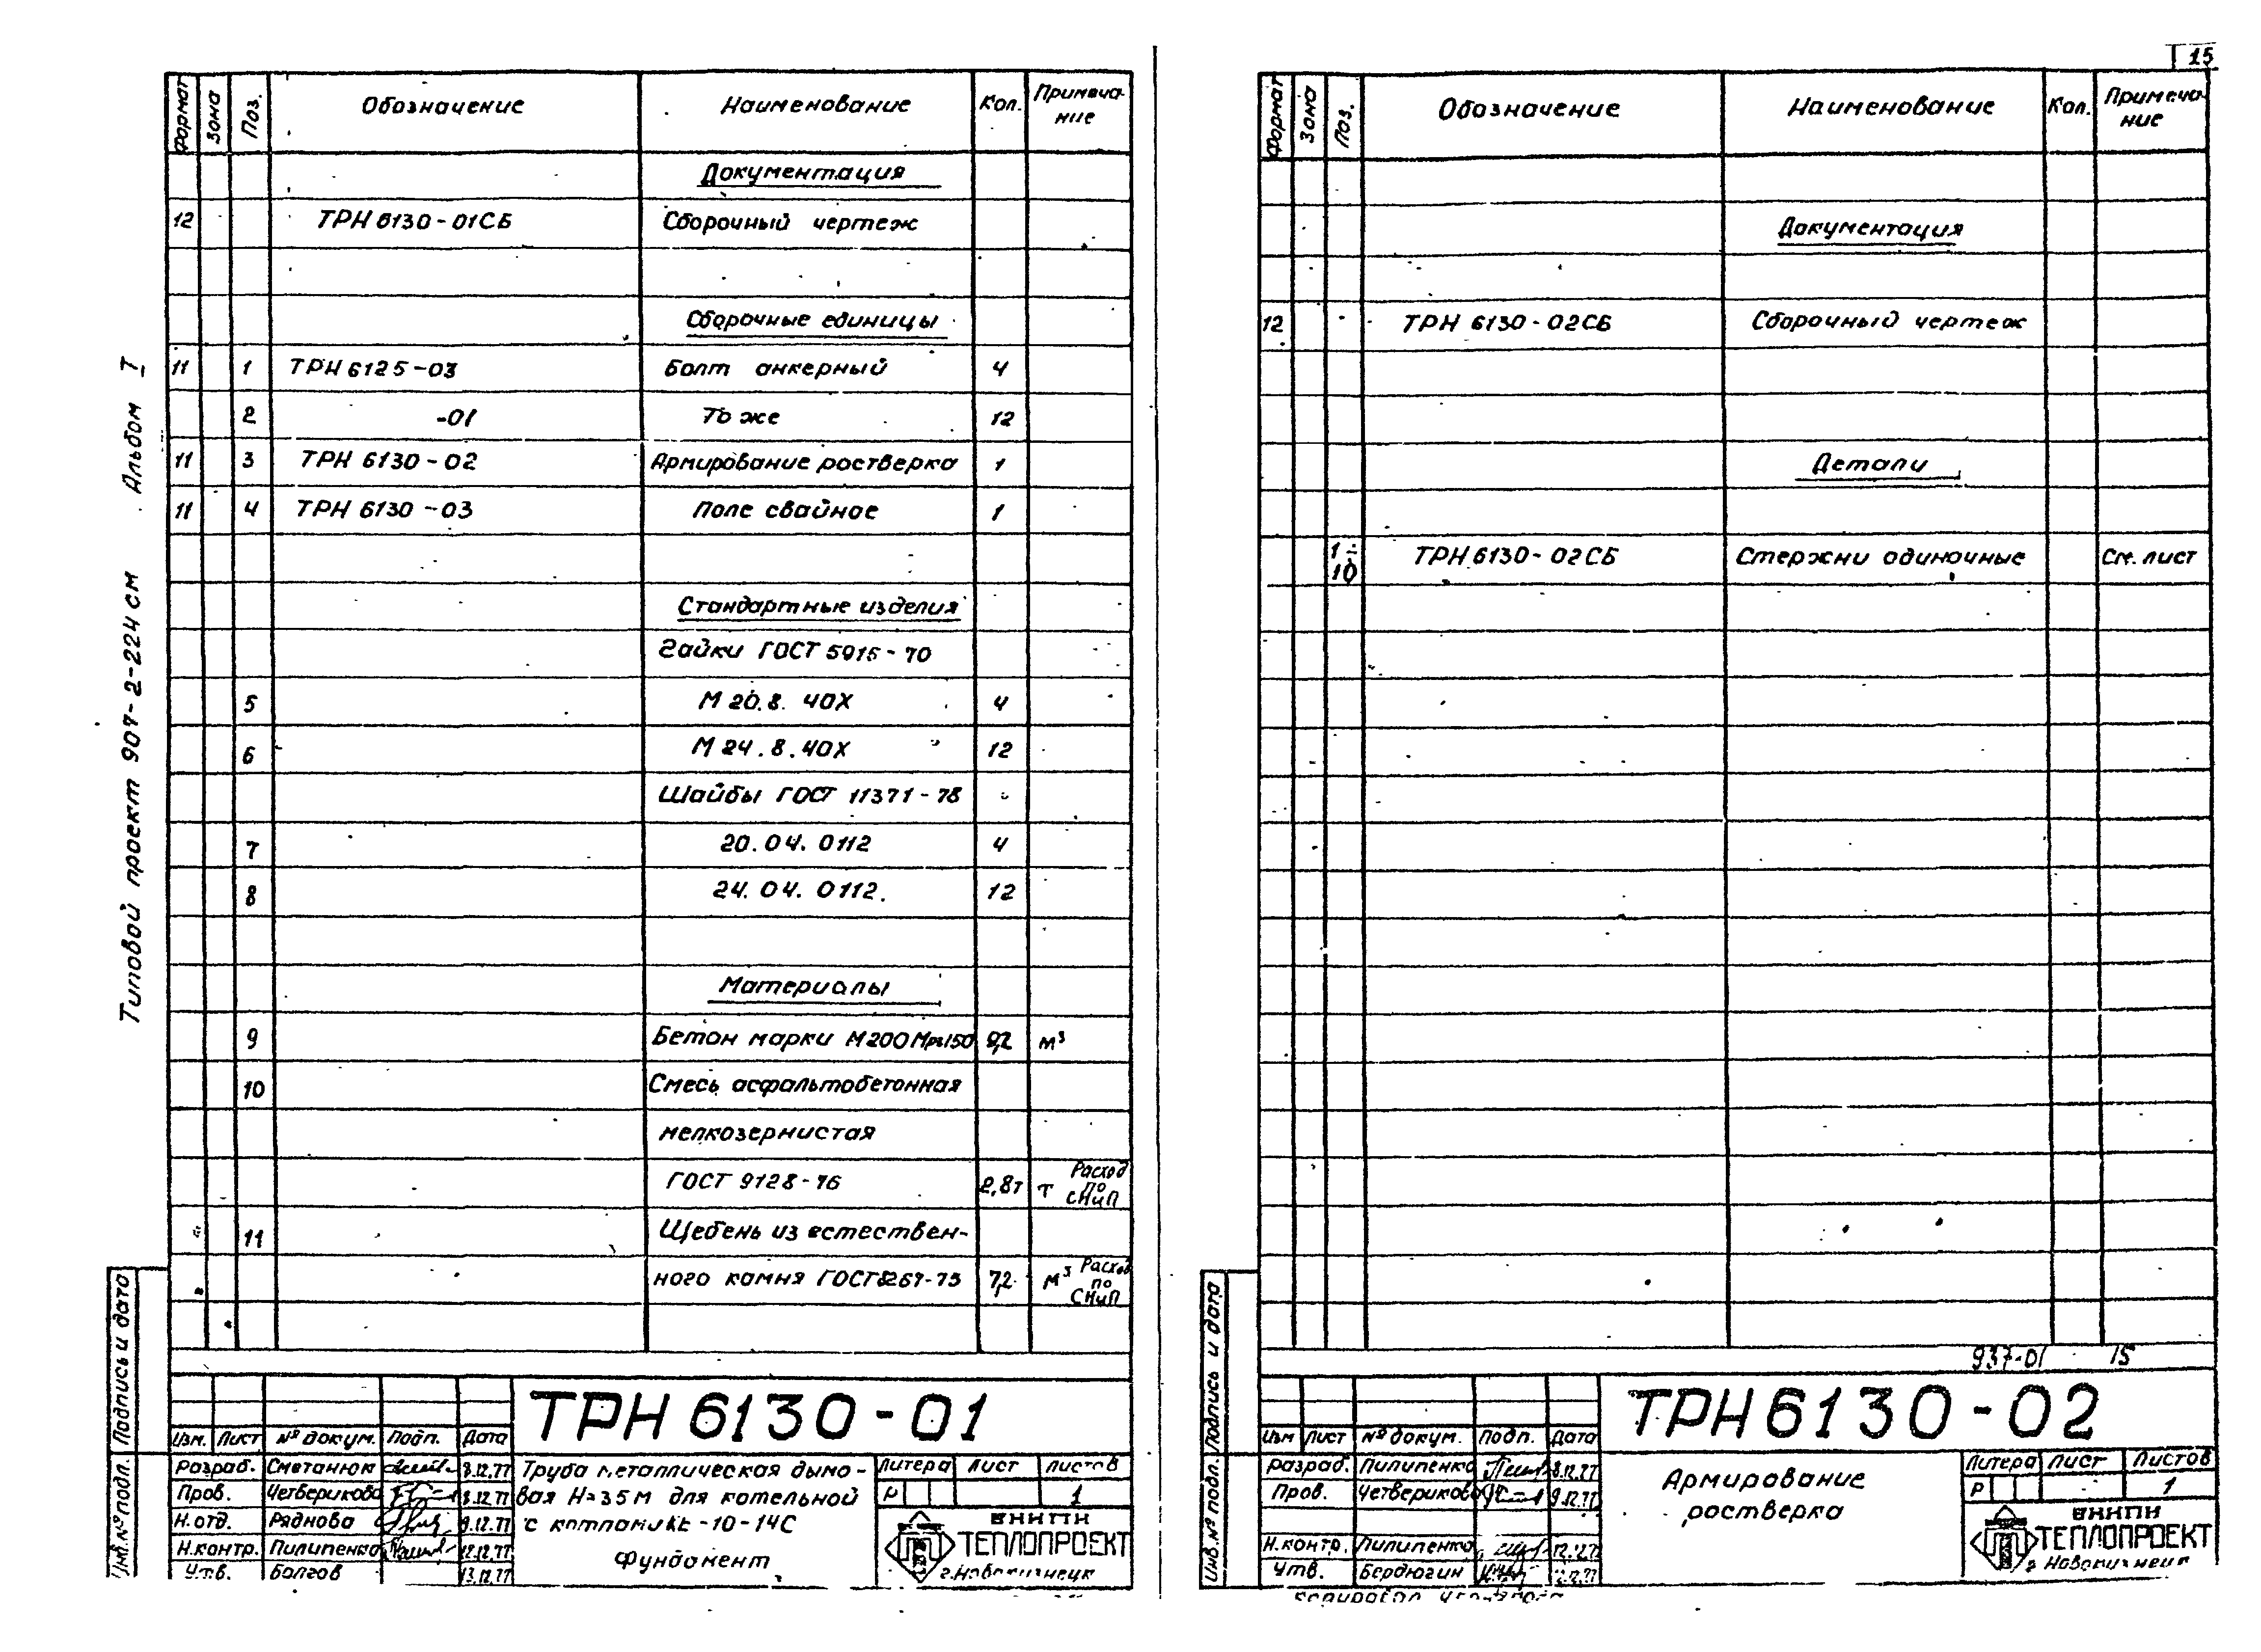 Типовой проект 907-2-224 см Альбом I
Формат Зона Поз. Обозначение Наименование Кол. Примеча-
ние
Документация
12 ТРН 6130-01СБ Сборочный чертеж
Сборочные единицы
11 1 ТРН 6125-03 Болт анкерный 4
2 -01 То же 12
11 3 ТРН 6130-02 Армирование ростверка 1
11 4 ТРН 6130-03 Поле свайное 1
Стандартные изделия
Гайки ГОСТ 5915-70
5 М 20.8.40Х 4
6 М 24.8.40Х 12
Шайбы ГОСТ 11371-78
7 20.04.0112 4
8 24.04.0112. 12
Материалы
9 Бетон марки М200 Мрз150 9,2 м³
10 Смесь асфальтобетонная
мелкозернистая
ГОСТ 9128-76 2,8т т Расход по СНиП
11 Щебень из естествен-
ного камня ГОСТ 8267-75 7,2 м³ Расход по СНиП
Подпись и дата
Инв.№ подл.
ТРН 6130-01
Изм. Лист № докум. Подп. Дата
Разраб. Сметанюк 8.12.77
Пров. Четверикова 8.12.77
Н.отд. Ряднова 9.12.77
Н.контр. Пилипенко 12.12.77
Утв. Болгов 13.12.77
Труба металлическая дымо-
вая Н=35м для котельной
с котлами КЕ-10-14С
Фундамент
Литера Лист Листов
Р 1
ВНИПИ
ТЕПЛОПРОЕКТ
г.Новокузнецк
15
Формат Зона Поз. Обозначение Наименование Кол. Примеча-
ние
Документация
12 ТРН 6130-02СБ Сборочный чертеж
Детали
1÷10 ТРН 6130-02СБ Стержни одиночные См. лист
937-01 15
Подпись и дата
Инв.№ подл.
ТРН 6130-02
Изм Лист № докум. Подп. Дата
Разраб. Пилипенко 8.12.77
Пров. Четверикова 9.12.77
Н.контр. Пилипенко 12.12.77
Утв. Бердюгин
Армирование
ростверка
Литера Лист Листов
Р - 1
ВНИПИ
ТЕПЛОПРОЕКТ
г.Новокузнецк
Копировал